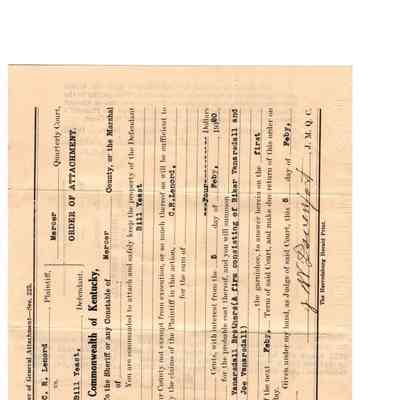 er of General Attachment—Sec. 223.
C. R. Lenord Plaintiff, Mercer Quarterly Court,
vs. ORDER OF ATTACHMENT.
Bill Yeast, Defendant.
Commonwealth of Kentucky,
To the Sheriff or any Constable of Mercer County, or the Marshal
of
You are commanded to attach and safely keep the property of the Defendant
Bill Yeast
County not exempt from execution, or so much thereof as will be sufficient to
y the claims of the Plaintiff in this action, C.R.Lenord,
for the sum of
Four Dollars
Cents, with interest from the 5 day of Feby, 1920
for the probable cost thereof, and you will summon
Vanarsdall Brothers(A firm consisting of Riker Vanarsdall and
Joe Vanarsdall)
, the garnishee, to answer herein on the first
of the next Feby, Term of said Court, and make due return of this order on
day.
Given under my hand, as Judge of said Court, this 5 day of Feby,
J. M. Q. C.
The Harrodsburg Herald Print.